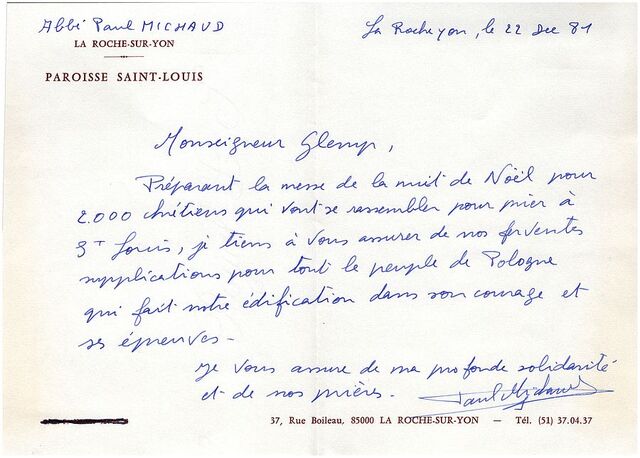 Abbé Paul MICHAUD
LA ROCHE-SUR-YON
PAROISSE SAINT-LOUIS
La Roche yon, le 22 Dec 81
Monseigneur Glemp,
Préparant la messe de la nuit de Noël pour
2.000 chrétiens qui vont se rassembler pour prier à
St Louis, je tiens à vous assurer de nos ferventes
supplications pour tout le peuple de Pologne
qui fait notre édification dans son courage et
ses épreuves -
Je vous assure de ma profonde solidarité
et de nos prières. -
Paul Michaud
37, Rue Boileau, 85000 LA ROCHE-SUR-YON — Tél. (51) 37.04.37